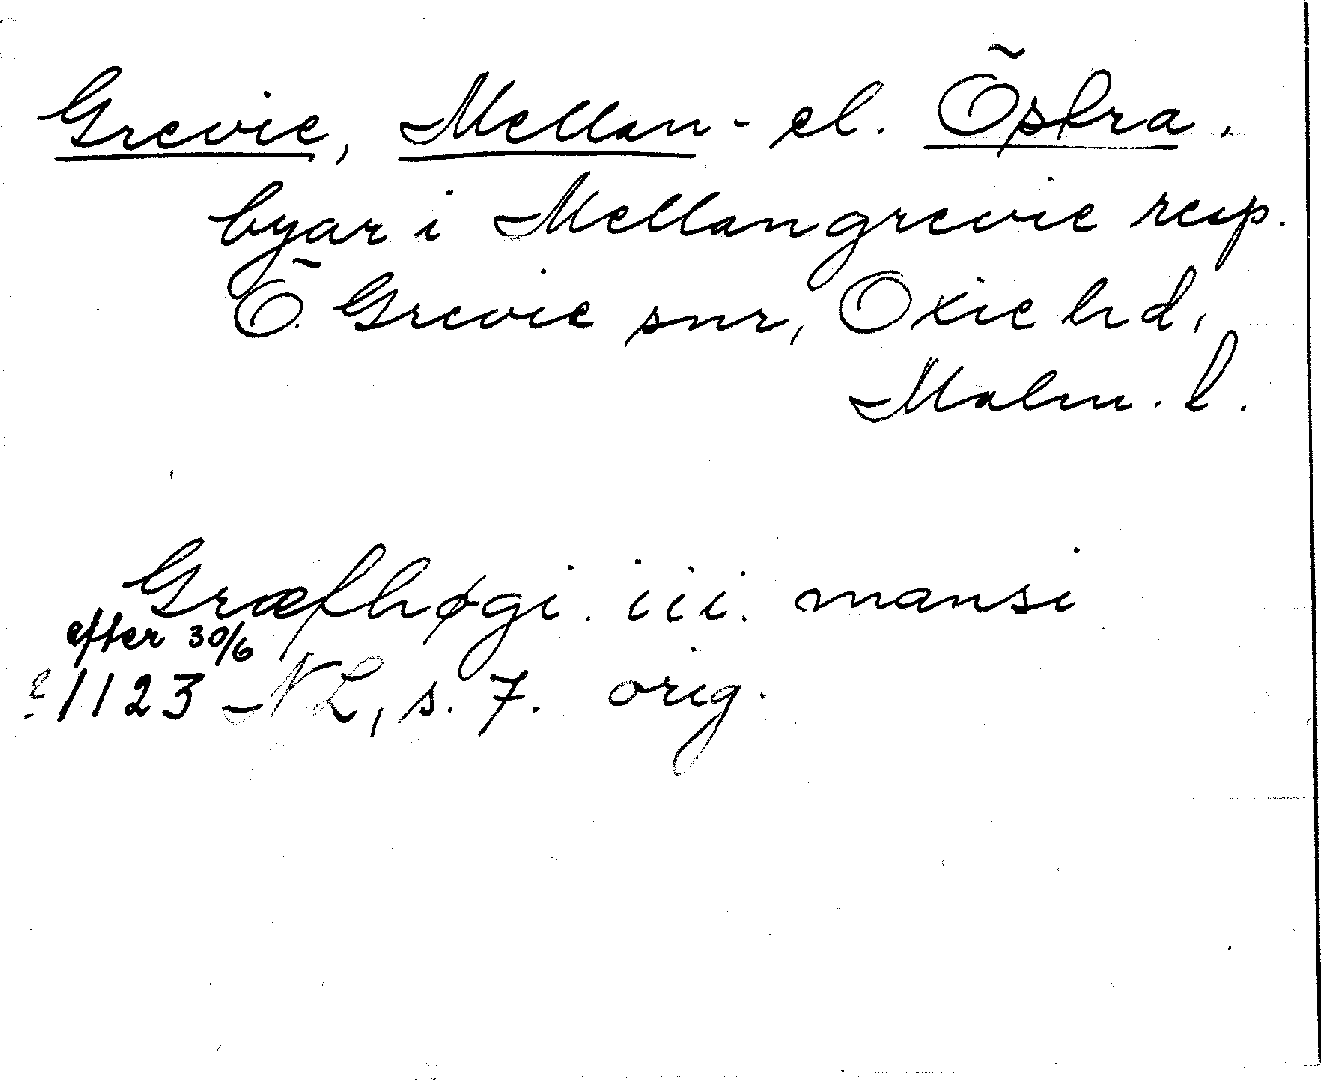 Grevie, Mellan- el. Östra.
byar i Mellangrevie resp.
Ö Grevie snr, Oxie hd,
Malm. l.
Græfhøgi . iii . mansi
efter 30/6
1123 NL, s. 7. orig.